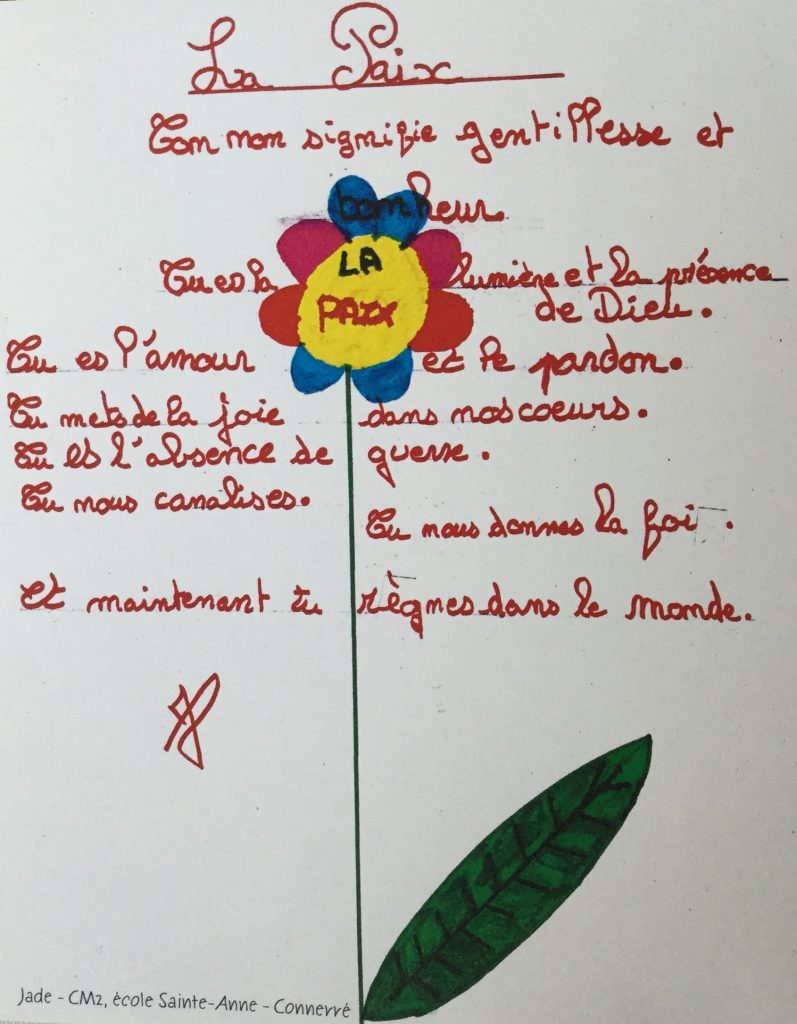 La Paix
Ton nom signifie gentillesse et
bonheur.
LA
PAIX
Tu es la lumière et la présence
de Dieu.
Tu es l'amour et le pardon.
Tu mets de la joie dans nos coeurs.
Tu es l'absence de guerre.
Tu nous canalises.
Tu nous donnes la foi.
Et maintenant tu règnes dans le monde.
Jade - CM2, école Sainte-Anne - Connerré